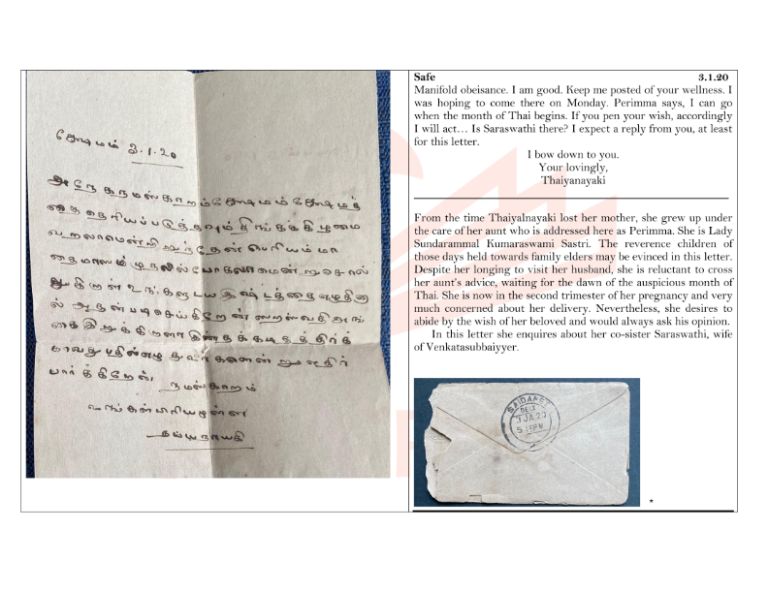 க்ஷேமம் 3.1.20
அநேக நமஸ்காரம் க்ஷேமம் க்ஷேமத்
தை தெரியப்படுத்தவும் திங்கக்கிழமை
வரலாமென்றிருந்தேன் பெரியம்மா
தைமாஸம்
கிறாள்
ல் அதன்படி செய்கிறேன் ஸரஸ்வதி அங்
இந்தக்கடிதத்திற்க்
காவது பதிலெழுதுவீர்களென்று எதிர்
பார்க்கிறேன்
நமஸ்காரம்
தய்யநாயகி
Safe 3.1.20
Manifold obeisance. I am good. Keep me posted of your wellness. I
was hoping to come there on Monday. Perimma says, I can go
when the month of Thai begins. If you pen your wish, accordingly
I will act… Is Saraswathi there? I expect a reply from you, at least
for this letter.
I bow down to you.
Your lovingly,
Thaiyanayaki
From the time Thaiyalnayaki lost her mother, she grew up under
the care of her aunt who is addressed here as Perimma. She is Lady
Sundarammal Kumaraswami Sastri. The reverence children of
those days held towards family elders may be evinced in this letter.
Despite her longing to visit her husband, she is reluctant to cross
her aunt's advice, waiting for the dawn of the auspicious month of
Thai. She is now in the second trimester of her pregnancy and very
much concerned about her delivery. Nevertheless, she desires to
abide by the wish of her beloved and would always ask his opinion.
In this letter she enquires about her co-sister Saraswathi, wife
of Venkatasubbaiyyer.
SAIDAPET
3 JA 20
*